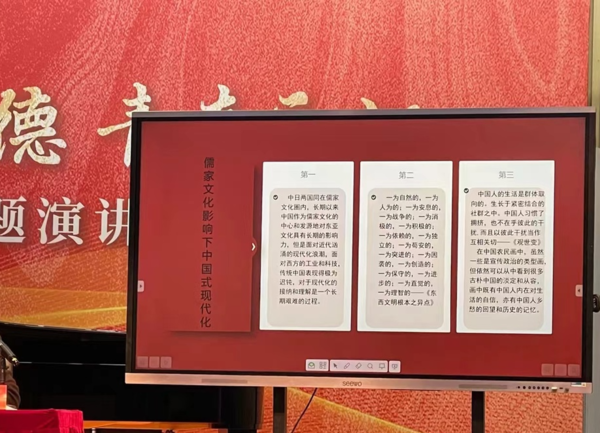 德 青
题演讲
儒家文化影响下中国式现代化
第一
中日两国同在儒家
文化圈内，长期以来
中国作为儒家文化的
中心和发源地对东亚
文化具有长期的影响
力。但是面对近代汹
涌的现代化浪潮，面
对西方的工业和科技，
传统中国表现得极为
迟钝，对于现代化的
接纳和理解是一个长
期艰难的过程。
第二
一为自然的，一为
人为的；一为安息的，
一为战争的；一为消
极的，一为积极的；
一为依赖的，一为独
立的；一为苟安的，
一为突进的；一为因
袭的，一为创造的；
一为保守的，一为进
步的；一为直觉的，
一为理智的——《东
西文明根本之异点》
第三
中国人的生活是群体取
向的，生长于紧密结合的
社群之中，中国人习惯了
拥挤，也不在乎彼此的干
扰，而且以彼此干扰当作
互相关切——《观世变》
在中国农民画中，虽然
一些是宣传政治的类型画，
但依然可以从中看到很多
古朴中国的淡定和从容。
画中既有中国人内在对生
活的自信，亦有中国人乡
愁的回望和历史的记忆。
seewo